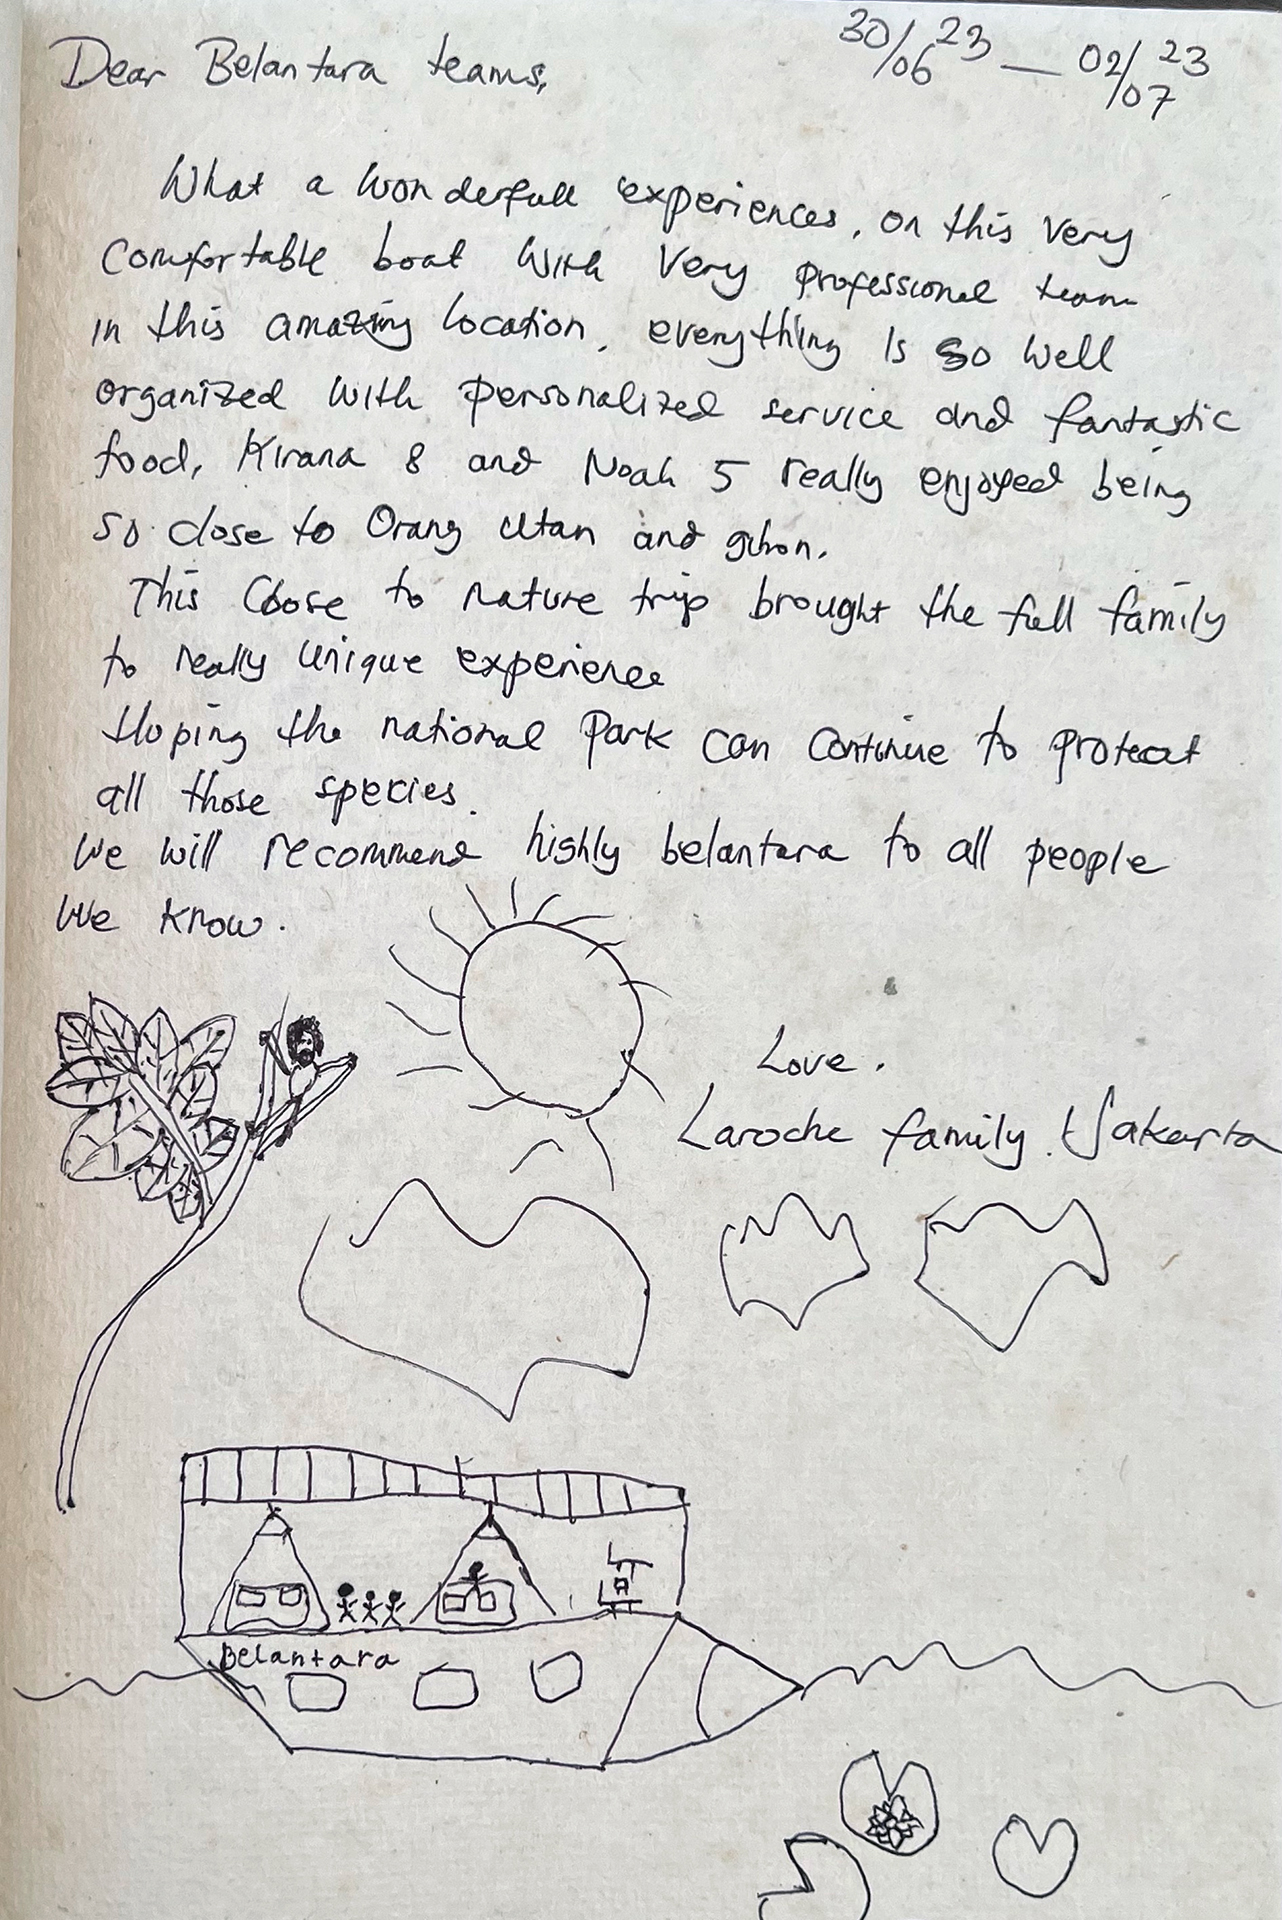 30/06 23 — 02/07 23
Dear Belantara teams,
What a wonderfull experiences, on this very
comfortable boat with very professional team
in this amazing location, everything is so well
organized with personalized service and fantastic
food, Kirana 8 and Noah 5 really enjoyed being
so close to Orang utan and gibon.
This Close to nature trip brought the full family
to really unique experience
Hoping the national Park can continue to protect
all those species.
We will recommend highly belantara to all people
we know.
Love.
Laroche family. Jakarta
Belantara